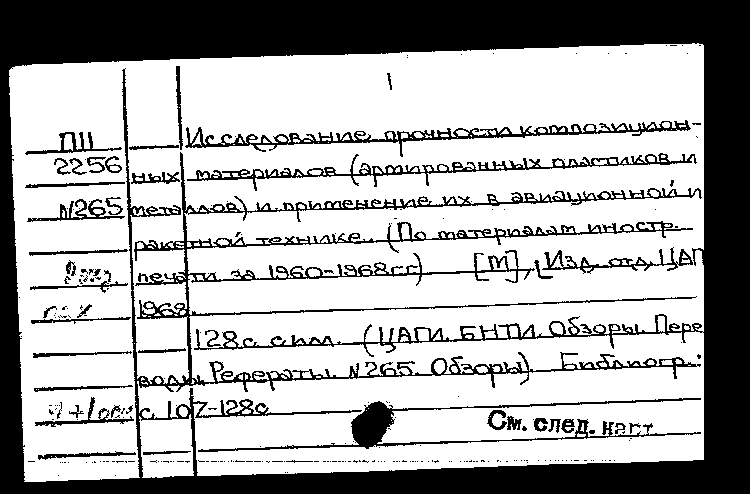 1
ПII Исследование прочности композицион-
2256 ных материалов (армированных пластиков и
№265 металлов) и применение их в авиационной и
ракетной технике. (По материалам иностр.
печати за 1960-1968гг) [М], [Изд. отд. ЦАГ
1968.
128с. с илл. (ЦАГИ. БНТИ. Обзоры. Пере
воды. Рефераты. №265. Обзоры). Библиогр.:
с. 107-128с
См. след. карт